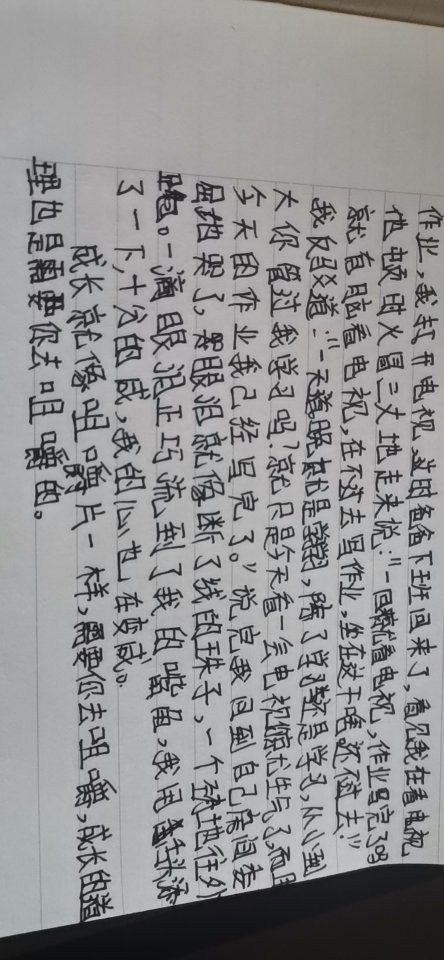 作业,我打开电视,这时爸爸下班回来了,看见我在看电视
他顿时火冒三丈地走来说:"一回家就看电视,作业写完了吗
就有脸看电视,在不去写作业,坐在这干啥还不去!"
我反驳道:"一天道晚就是学习,除了学习还是学习,从小到
大你管过我学习吗?就只是今天看一会电视你就生气了,而且
今天的作业我已经写完了。"说完我回到自己房间委
屈地哭了,眼泪就像断了线的珠子,一个劲地往外
跑。一滴眼泪正巧流到了我的嘴角,我用舌头添
了一下,十分的咸,我的心也在变咸。
成长就像咀嚼片一样,需要你去咀嚼,成长的道
理也是需要你去咀嚼的。